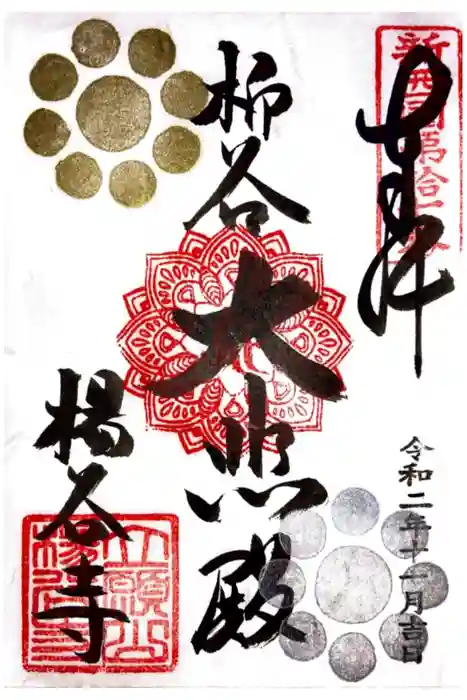 奉拝
新西国第拾七番
柳谷
大悲殿
楊谷寺
立願山
楊谷寺
令和二年十一月吉日